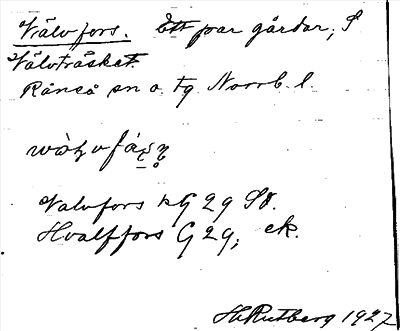 Välvfors. Ett par gårdar, S
Välvträsket.
Råneå sn o. tg Norrb. l.
Valvfors nG 29 St.
Hvalffors G 29, ek.
H Rutberg 1927